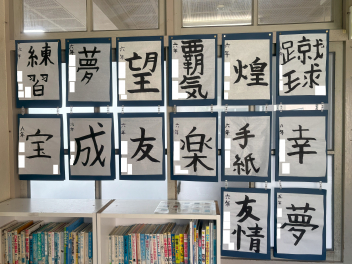 練習
夢
望
覇気
煌
蹴球
宝
成
友
楽
手紙
幸
友情
夢